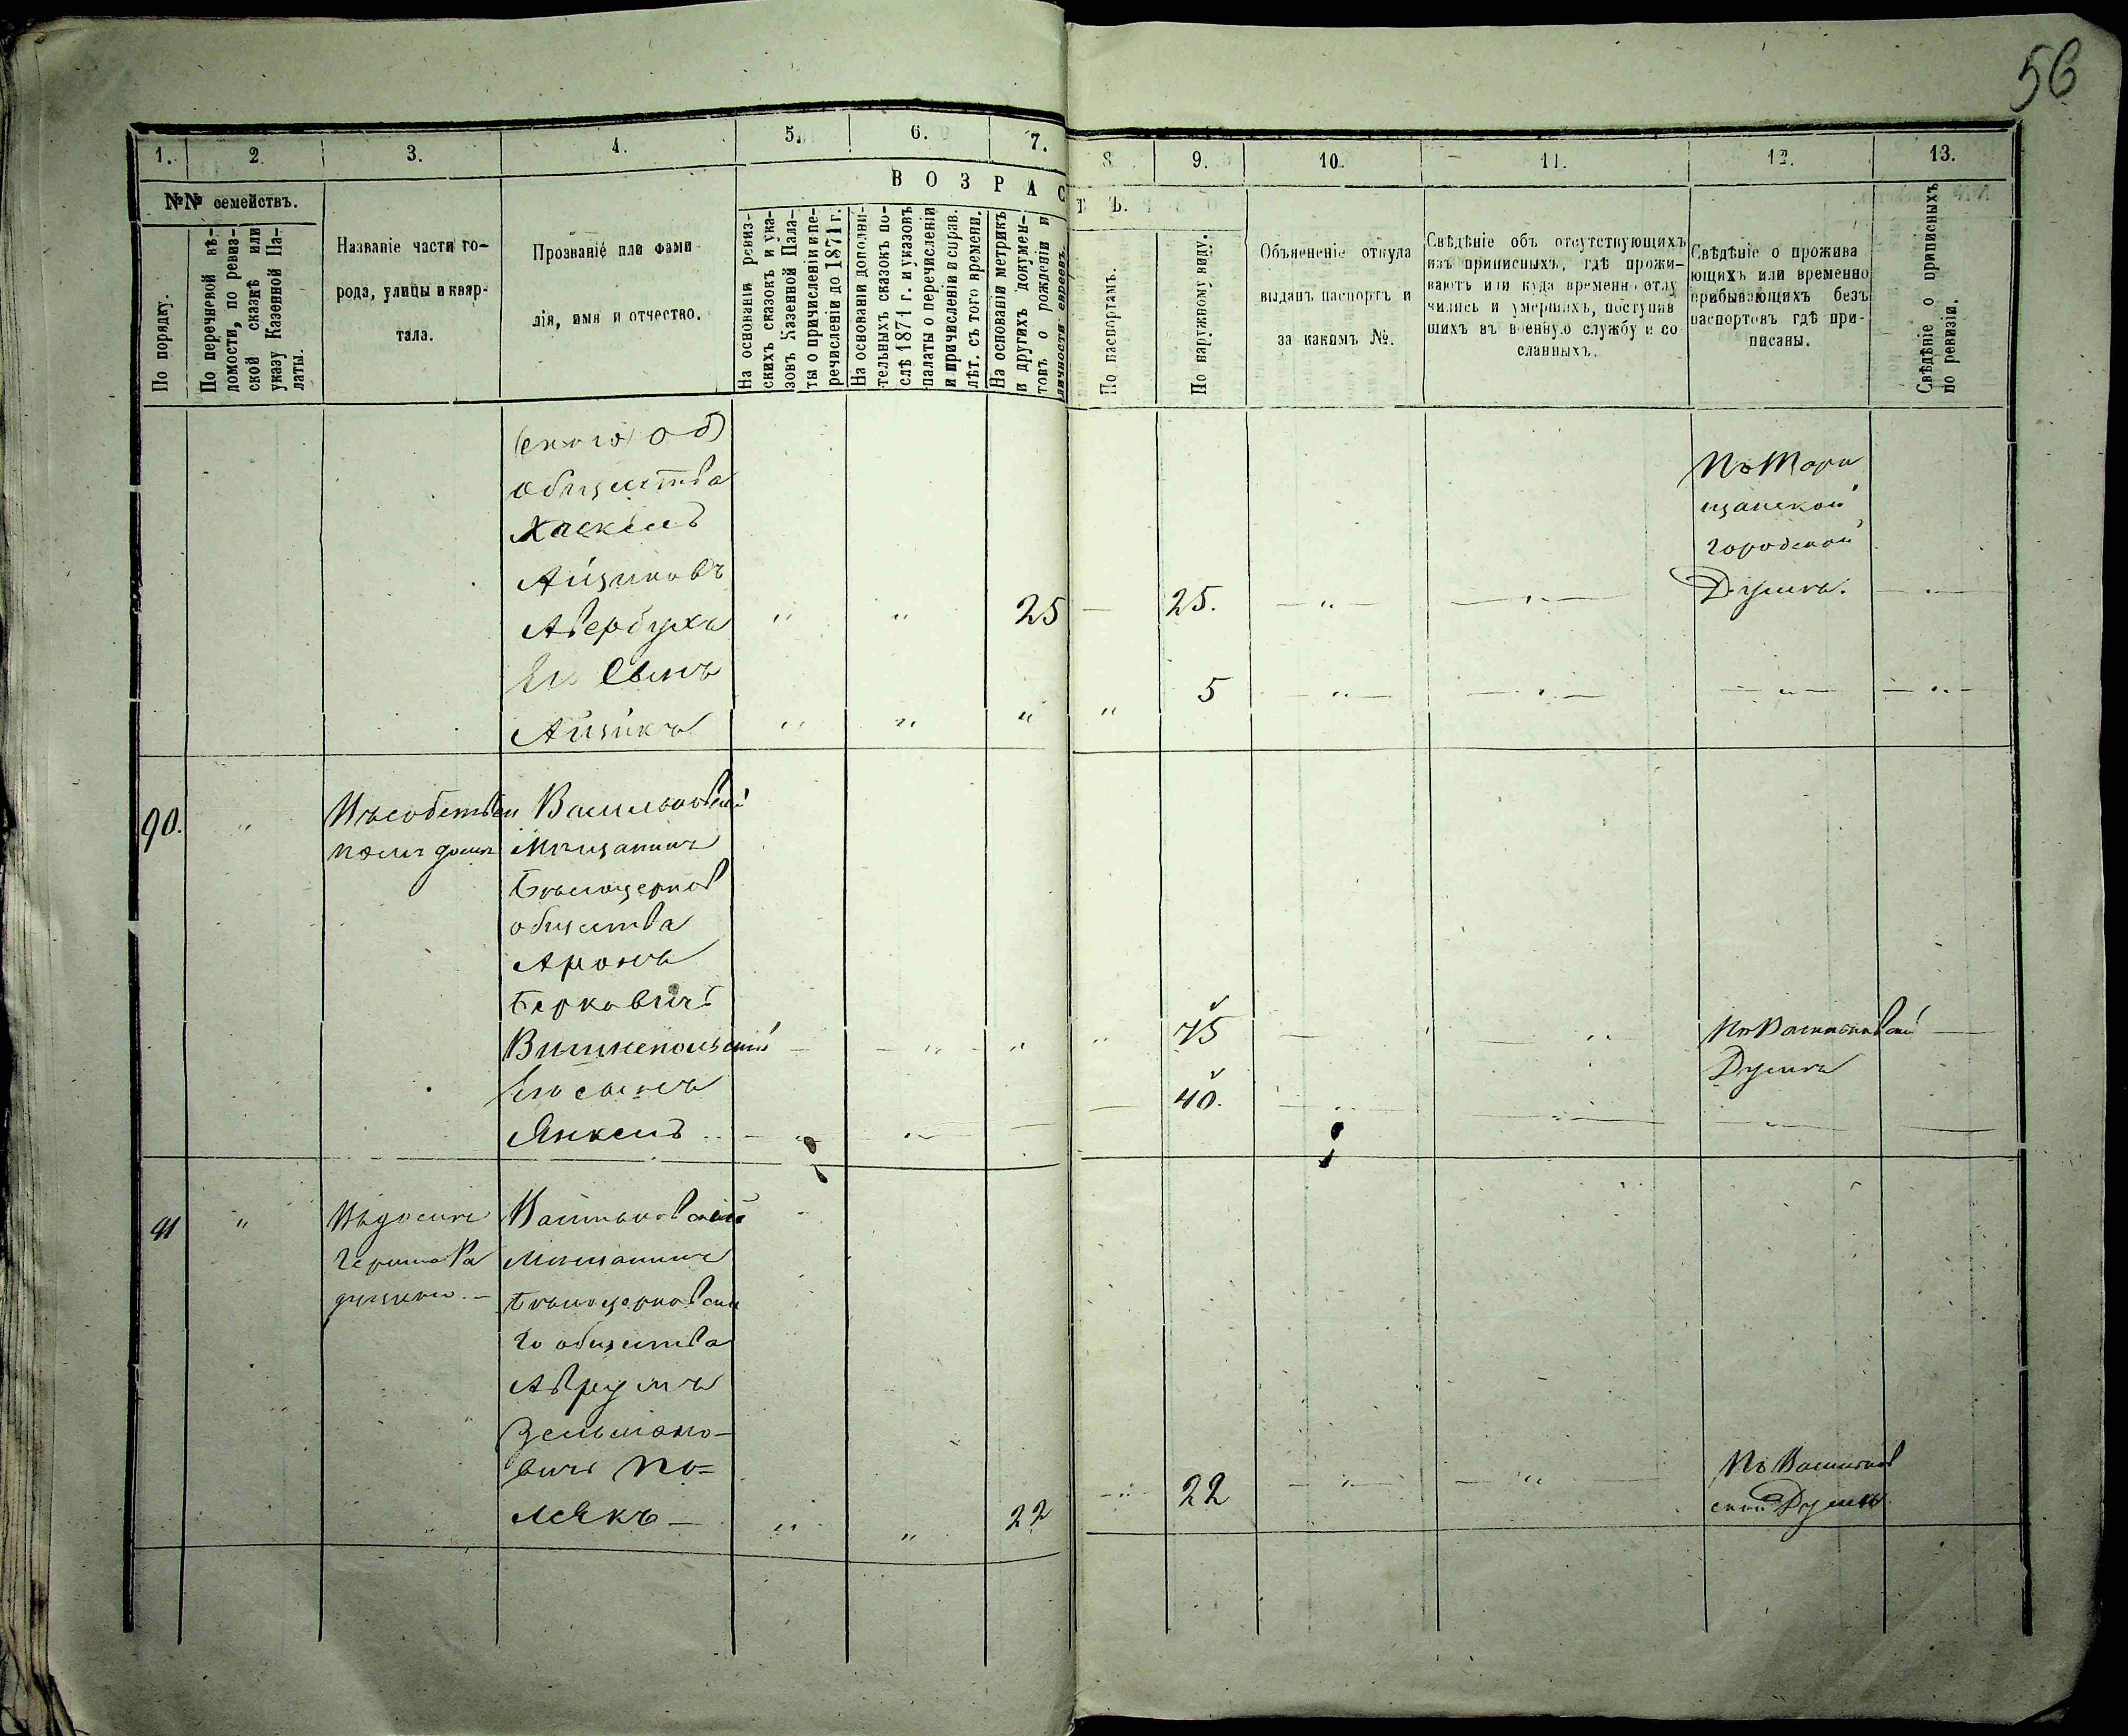 56
1. 2. 3. 4. 5. 6. 7. 8. 9. 10. 11. 12. 13.
ВОЗРАСТЪ.
№№ семействъ.
По порядку.
По перечневой вѣ-
домости, по ревиз-
ской сказкѣ или
указу Казенной Па-
латы.
Названіе части го-
рода, улицы и квар-
тала.
Прозваніе или фами
лія, имя и отчество.
На основаніи ревиз-
скихъ сказокъ и ука-
зовъ Казенной Пала-
ты о причисленіи и пе-
речисленіи до 1871 г.
На основаніи дополни-
тельныхъ сказокъ по-
слѣ 1871 г. и указовъ
палаты о перечисленіи
и причисленіи и справ.
лѣт. съ того времени.
На основаніи метрикъ
и другихъ докумен-
товъ о рожденіи и
личности евреевъ.
По паспортамъ.
По наружному виду.
Объясненіе откуда
выданъ паспортъ и
за какимъ №.
Свѣдѣніе объ отсутствующихъ
изъ приписныхъ, гдѣ прожи-
ваютъ или куда временно отлу
чились и умершихъ, поступив
шихъ въ военную службу и со
сланныхъ.
Свѣдѣніе о прожива
ющихъ или временно
прибывающихъ безъ
паспортовъ гдѣ при-
писаны.
Свѣдѣніе о приписныхъ
по ревизіи.
общества
Хаскель
Айзиковъ
Авербухъ " " 25 — 25. — " — — " — — " —
Его Сынъ
Айзикъ " " " " 5 — " — — " — — " — — " —
Въ Тара
щанской
городской
Думѣ.
90. " Въ собствен Васильковскій
номъ домѣ Мѣщанинъ
Бѣлоцерков
общества
Аронъ
Берковичъ
Вишнепольскій — — " — " " 75 — — " Въ Васильковской —
Думѣ
Его сынъ
Янкель — 40.
91 " Въ домѣ Васильковскій
Гершка Ва Мѣщанинъ
Бѣлоцерковска
го общества
Аврумъ
Зельмано-
вичъ По-
лякъ — " " 22 — " — 22 — " — — " —
Въ Васильков
ской Думѣ